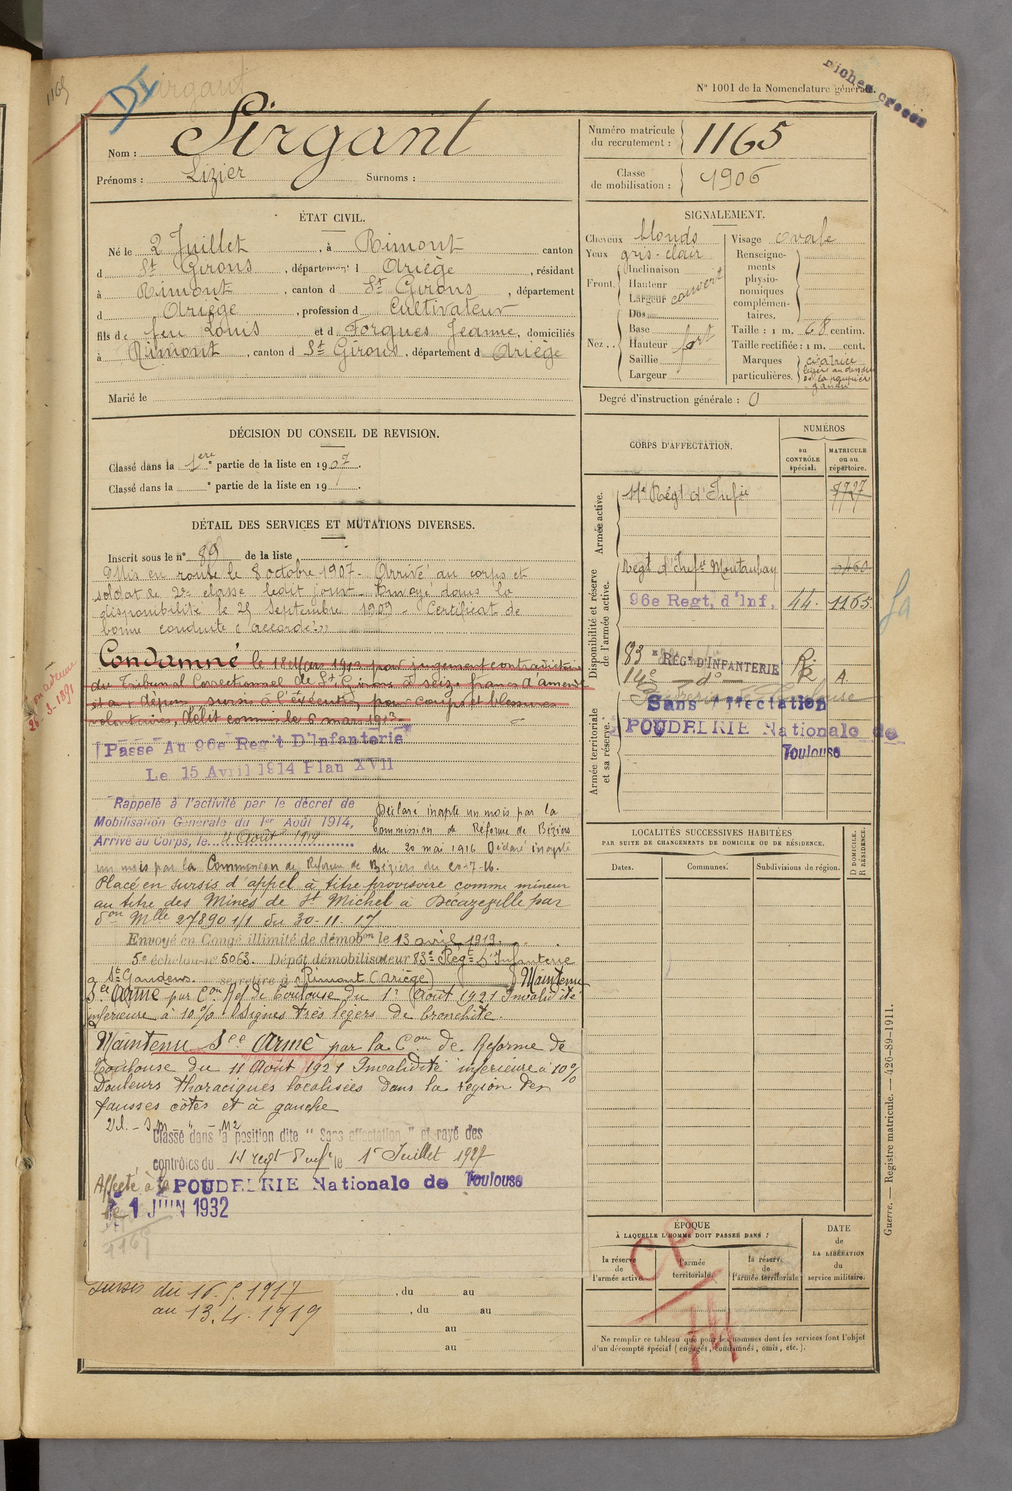 1165
DI
Sirgant
N° 1001 de la Nomenclature générale.
fiches croses
Nom : Sirgant
Prénoms : Lizier Surnoms :
Numéro matricule du recrutement : 1165
Classe de mobilisation : 1906
ÉTAT CIVIL.
Né le 2 Juillet, à Rimont canton
d St Girons, département d Ariège, résidant
à Rimont, canton d St Girons, département
d Ariège, profession d Cultivateur
fils de feu Louis et d Forgues Jeanne, domiciliés
à Rimont, canton d St Girons, département d Ariège
Marié le
SIGNALEMENT.
Cheveux blonds
Yeux gris-clair
Front. Inclinaison
Hauteur
Largeur couvert
Nez .. Dos
Base
Hauteur fort
Saillie
Largeur
Visage ovale
Renseignements physionomiques complémentaires.
Taille : 1 m. 68 centim.
Taille rectifiée : 1 m. cent.
Marques particulières. cicatrice
légère au dessus
de la paupière
gauche
Degré d'instruction générale : 0
DÉCISION DU CONSEIL DE REVISION.
Classé dans la 1ère partie de la liste en 1907.
Classé dans la ° partie de la liste en 19 .
DÉTAIL DES SERVICES ET MUTATIONS DIVERSES.
Inscrit sous le n° 89 de la liste
Mis en route le 8 octobre 1907 - Arrivé au corps et
soldat de 2e classe ledit jour - Envoyé dans la
disponibilité le 25 Septembre 1909 - Certificat de
bonne conduite « accordé »
Condamné le 18 Mars 1913 par jugement contradictoire
du Tribunal Correctionnel de St Girons à seize francs d'amende
et aux dépens sursis à l'exécution pour coups et blessures
volontaires, délit commis le 6 mars 1913
26-3-1891
Passé Au 96e Reg't D'Infanterie
Le 15 Avril 1914 Plan XVII
Rappelé à l'activité par le décret de
Mobilisation Générale du 1er Août 1914,
Arrivé au Corps, le 4 Août 1914
Déclaré inapte un mois par la
Commission de Réforme de Béziers
du 20 mai 1916 Déclaré inapte
un mois par la Commission de Réforme de Béziers du 20-7-16.
Placé en sursis d'appel à titre provisoire comme mineur
au titre des Mines de St Michel à Decazeville par
don Mlle 27890 1/1 du 30-11-17
Envoyé en Congé illimité de démobon le 13 avril 1919.
5e échelon n° 5063. Dépôt démobilisateur 83e Régt D'Infanterie
à St Gaudens. se retire à Rimont (Ariège) Maintenu
Sce Armé par Con Ref de Toulouse du 1er Août 1921 Invalidité
inférieure à 10% : signes très légers de bronchite.
Maintenu Sce Armé par la Con de Réforme de
Toulouse du 11 Août 1921 Invalidité inférieure à 10%
Douleurs thoraciques localisées dans la région des
fausses côtes et à gauche
Classé dans la position dite "Sans affectation" et rayé des
contrôles du 14 regt d'infie le 1er Juillet 1927
Affecté à la POUDRERIE Nationale de Toulouse
le 1 JUIN 1932
1165
sursis du 16.9.1917
au 13.4.1919
, du au
, du au
au
au
CORPS D'AFFECTATION.
NUMÉROS
au CONTRÔLE spécial.
MATRICULE ou au répertoire.
Armée active.
Régt d'Infie
7727
Disponibilité et réserve de l'armée active.
Régt d'Infie Montauban
96e Regt, d'Inf, 44. 1165
83 e RÉGt D'INFANTERIE
14e do A.
Armée territoriale et sa réserve.
Sans Affectation
POUDRERIE Nationale de
Toulouse
LOCALITÉS SUCCESSIVES HABITÉES
PAR SUITE DE CHANGEMENTS DE DOMICILE OU DE RÉSIDENCE.
Dates.
Communes.
Subdivisions de région.
D DOMICILE.
R RÉSIDENCE.
ÉPOQUE
À LAQUELLE L'HOMME DOIT PASSER DANS :
la réserve de l'armée active.
l'armée territoriale.
la réserve de l'armée territoriale
DATE de LA LIBÉRATION du service militaire.
CP
Ne remplir ce tableau que pour les hommes dont les services font l'objet
d'un décompte spécial (engagés, condamnés, omis, etc.).
Guerre. — Registre matricule. — 426-89-1911.